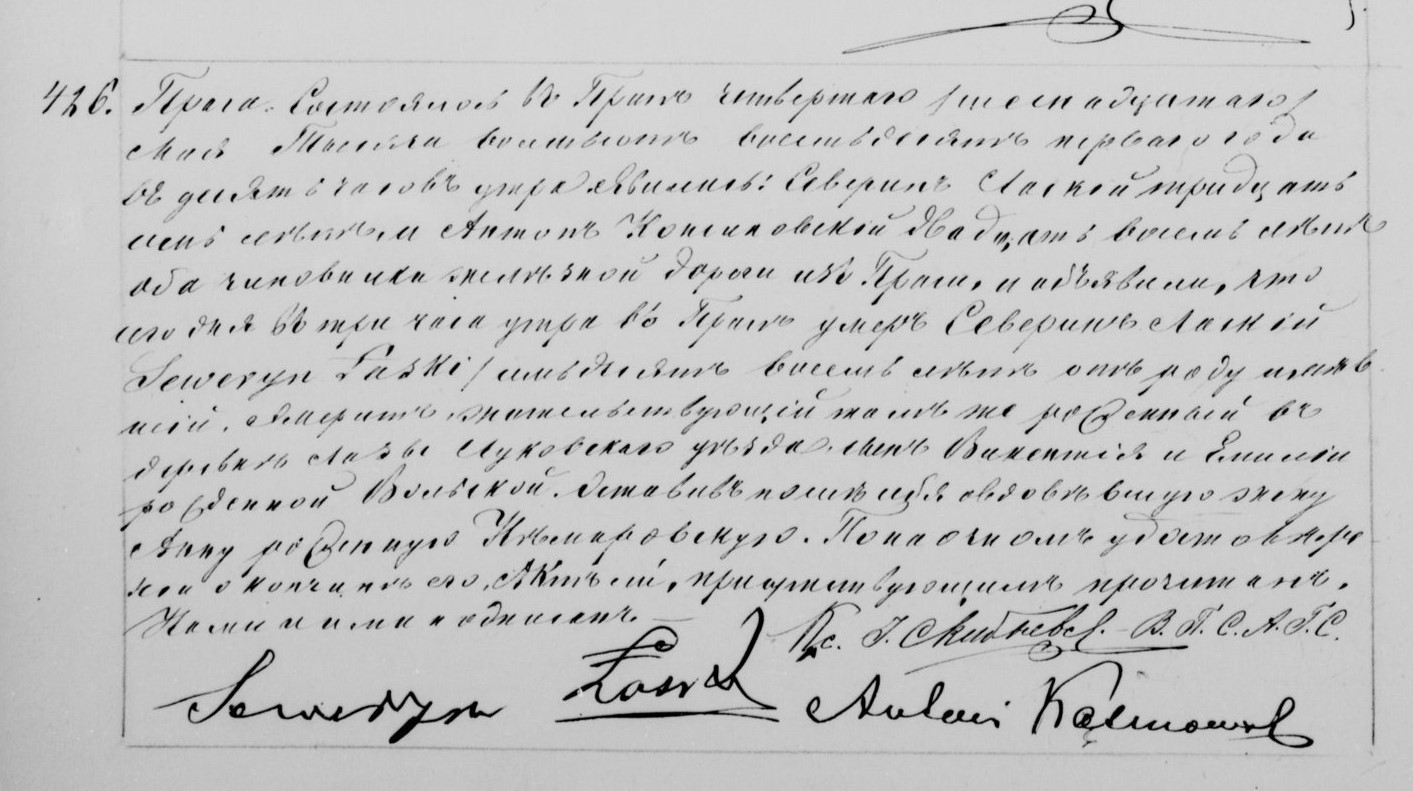 426. Прага. Состоялось въ Прагѣ четвертаго /шестнадцатаго/
Мая Тысяча восемьсотъ восемьдесятъ перваго года
въ десять часовъ утра. Явились: Северинъ Ласкій тридцать
семь лѣтъ и Антонъ двадцать восемь лѣтъ
оба чиновники желѣзной дороги изъ Праги, и объявили, что
сего дня въ три часа утра въ Прагѣ умеръ Северинъ Ласкій
Seweryn Łaski / семьдесятъ восемь лѣтъ отъ роду
Эмеритъ жительствующій тамъ же рожденный въ
деревнѣ Лазы Луковскаго уѣзда сынъ Викентія и Емиліи
рожденной Вольской. Оставивъ послѣ себя овдовѣвшую жену
Анну рожденную По наочномъ удостовѣре-
ніи о кончинѣ его, Актъ сей, присутствующимъ прочитанъ,
Нами и ими подписанъ. — Кс. І. В. П. С. А. Г. С.
Seweryn Łaski Antoni